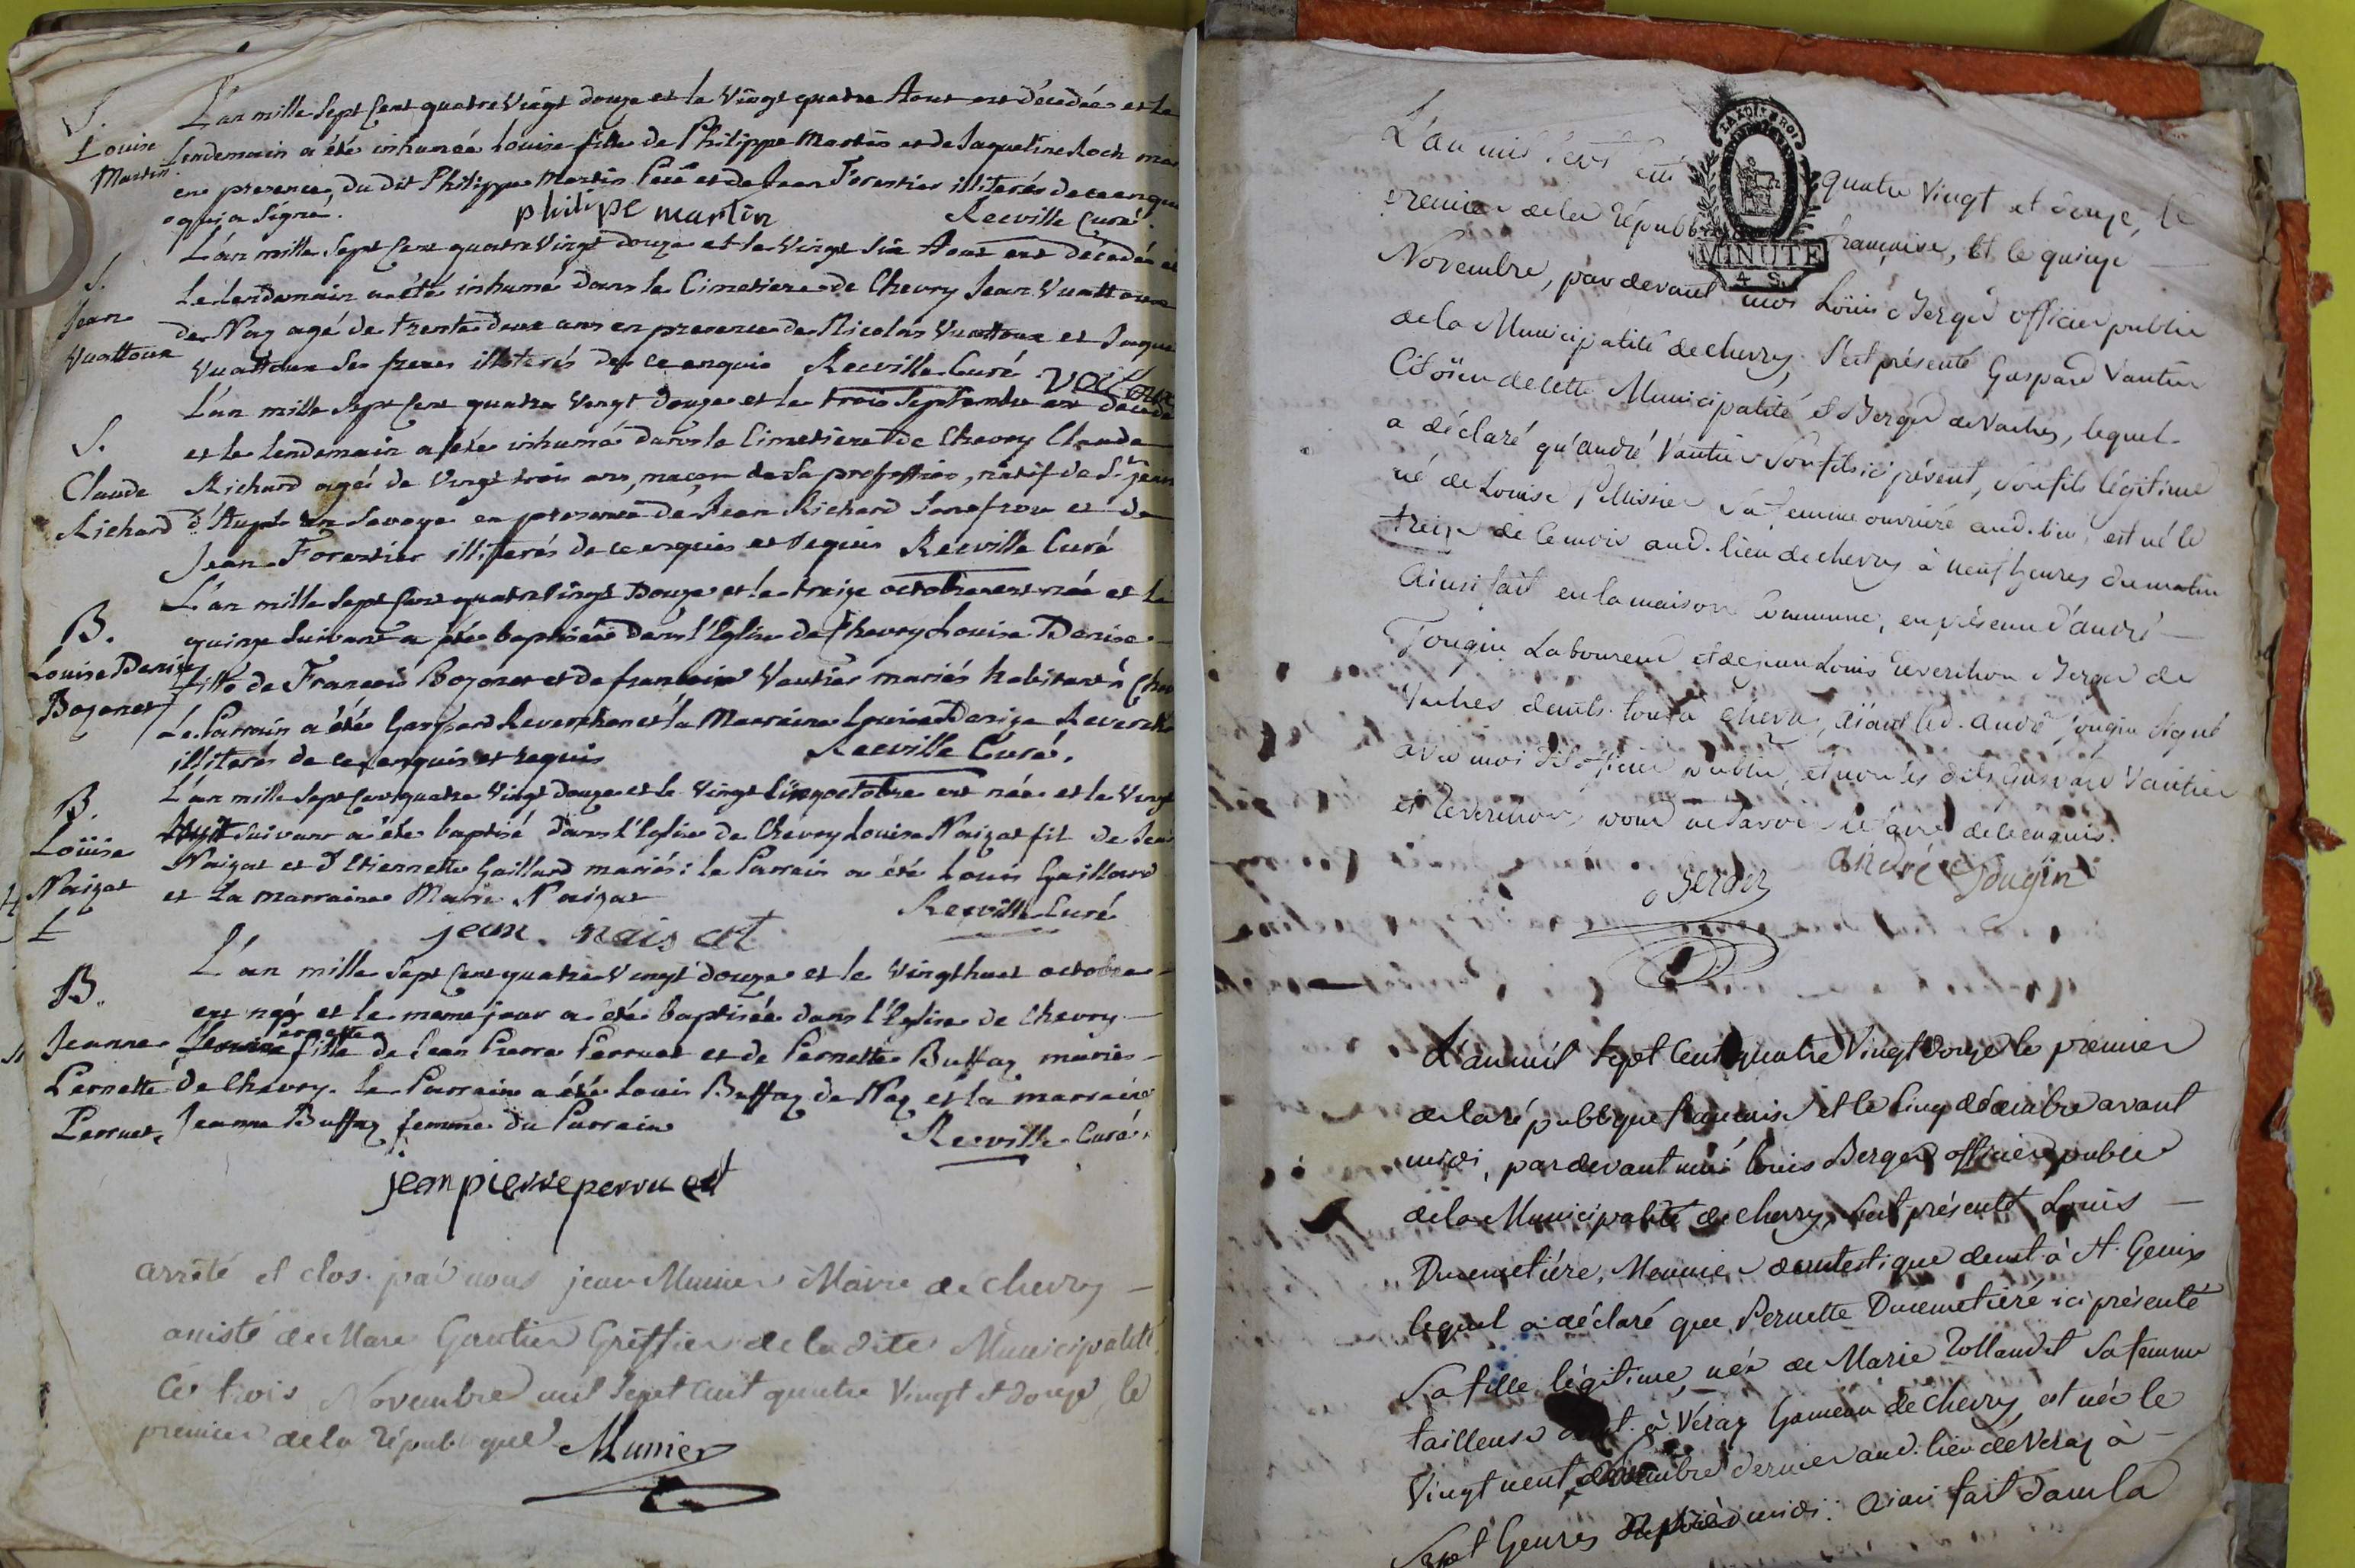 S.
Louise
Martin
L'an mille Sept Cent quatre Vingt douze et le Vingt quatre Aout est décedée et le
lendemain a été inhumée Louise fille de Philippe Martin et de Jaqueline Roch
en presence du dit Philippe Martin Pere et de Jean Forestier illiterés de ce enquis
qui a signé.
philipe martin
Reeville Curé.
S.
Jean
Vuattoux
L'an mille Sept Cent quatre Vingt douze et le Vingt Six Aout est décedé et
le lendemain a été inhumé dans le Cimetiere de Chevry Jean Vuattoux
de Naz agé de trente deux ans en presence de Nicolas Vuattoux et
Vuattoux Ses freres illiterés de ce enquis Reeville Curé
S.
Claude
Richard
L'an mille Sept Cent quatre Vingt douze et le trois Septembre est décedé
et le lendemain a été inhumé dans le Cimetiere de Chevry Claude
Richard agé de Vingt trois ans, maçon de Sa profession, natif de St. jean
d'Aulph en Savoye en presence de Jean Richard Son frere et de
Jean Forestier illiterés de ce enquis et requis Reeville Curé
B.
Louise Denise
Bozonet
L'an mille Sept Cent quatre Vingt Douze et le treize octobre est née et le
quinze Suivant a été baptisée dans l'Eglise de Chevry Louise Denise
fille de François Bozonet et de françoise Vautier mariés habitant à
Le Parrain a été Gaspard Reverchon et la Marraine Louise Denise
illiterés de ce enquis et requis
Reeville Curé.
B.
Loüise
Naizat
L'an mille Sept Cent quatre Vingt douze et le Vingt Cinq octobre est née et le Vingt
Suivant a été baptisé dans l'Eglise de Chevry Louise Naizat fil de
Naizat et d'Etiennette Gaillard mariés: le Parrain a été Louis Gaillard
et La marraine Marie Naizat
Reeville Curé
jean naisat
B.
Jeanne
Pernette
Perruet.
L'an mille Sept Cent quatre Vingt douze et le Vingthuit octobre
est née et le meme jour a été baptisée dans l'Eglise de Chevry
Jeanne Pernette fille de Jean Pierre Perruet et de Pernette Buffaz mariés
de Chevry. le Parrain a été Louis Buffaz de Naz et la marraine
Jeanne Buffaz femme du Parrain
Reeville Curé.
jean pierre perruet
arrêté et clos par nous jean Munier Maire de chevry
de Marc Gautier Greffier de la dite Municipalité
Ce trois Novembre mil Sept Cent quatre Vingt et douze, le
premier de la République
Munier
LA LOI ET LE ROI
MINUTE
4 S.
L'an mil Sept Cent quatre Vingt et douze, le
premier de la République française, et le quinze
Novembre, par devant moi Loüis Berger officier public
de la Municipalité de chevry, S'est présenté Gaspard Vautier
Citoïen de cette Municipalité et Berger de Vaches, lequel
a déclaré qu'andré Vautier Son fils ici présent, Son fils légitime
né de Louise Pellissier Sa femme ouvriere aud. lieu, est né le
treize de ce mois aud. lieu de chevry à neuf heures du matin
Ainsi fait en la maison Commune, en présence d'andré
Jougin Laboureur et de jean Louis Reverchon Berger de
Vaches deмts. tous à chevry, aïant led. andré Jougin Signé
avec moi dit officier public, et non les dits Gaspard Vautier
et Reverchon, pour ne Savoir le faire de ce enquis.
Berger
andré Jougin
L'an mil Sept Cent quatre Vingt douze le premier
de la république française et le Cinq décembre avant
midi, par devant moi louis Berger officier public
de la Municipalité de chevry, S'est présenté Louis
Ducimetiére, Meunier domestique demt. à St. Genix
lequel a déclaré que Pernette Ducimetiére ici présente
Sa fille légitime, née de Marie Rollandet Sa femme
tailleuse demt. à Véraz hameau de chevry, est née le
Vingt neuf dernier aud. lieu de Veraz à
Sept heures après midi. Ainsi fait dans la